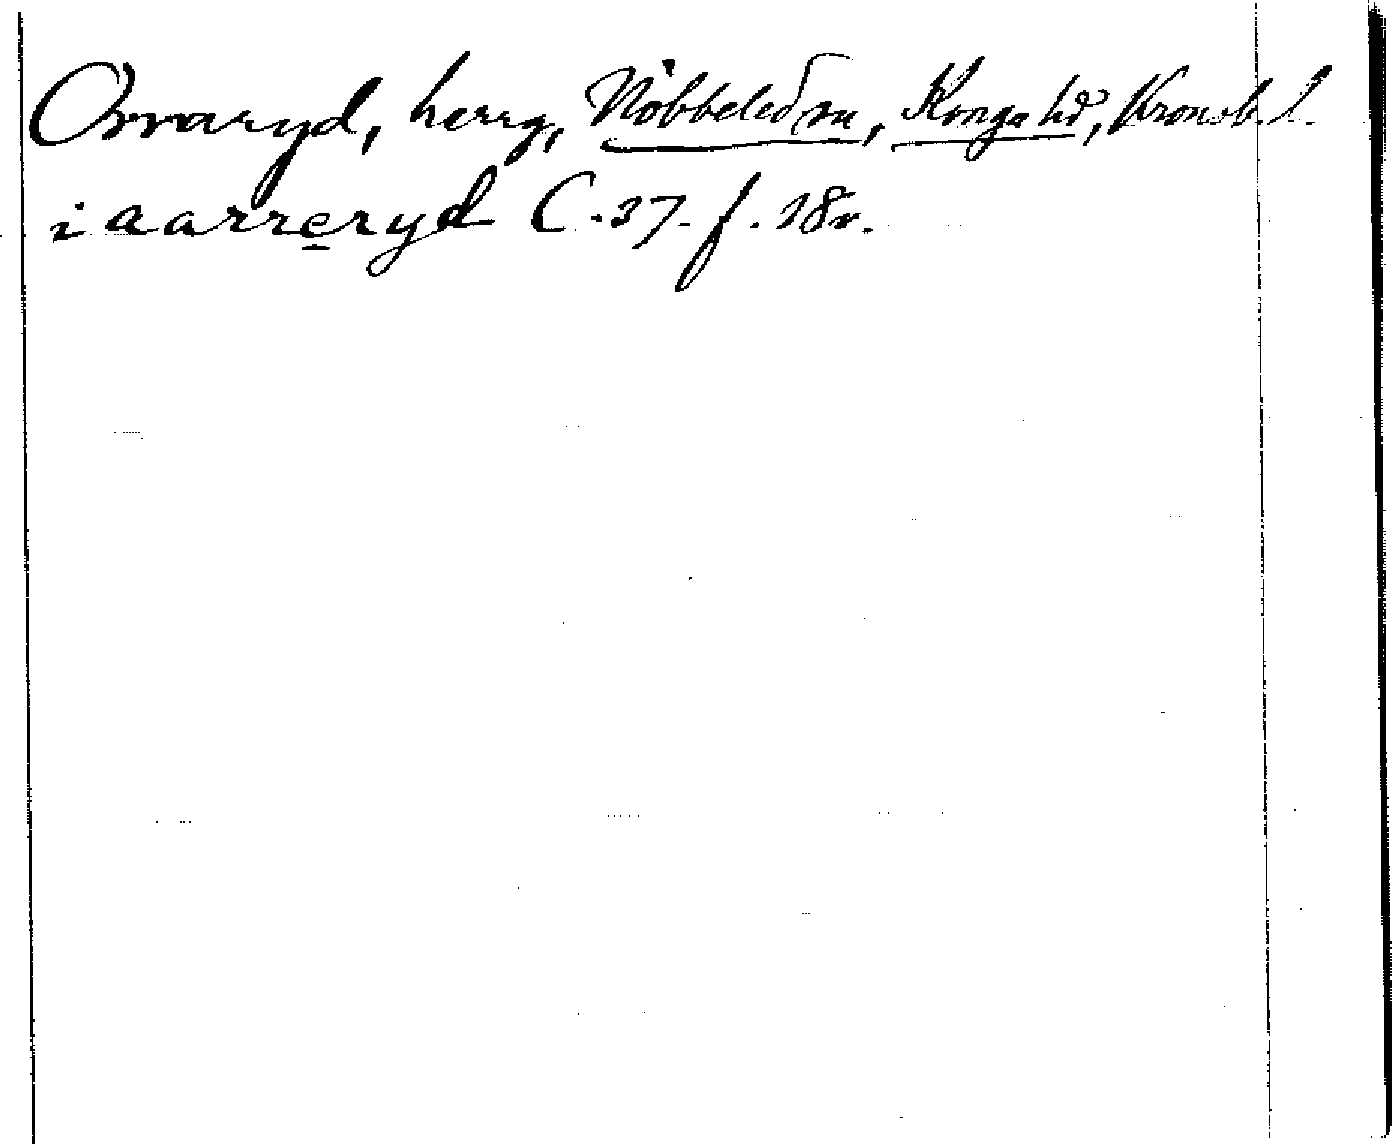 Orraryd, herrg, Nöbbeled sn, Konga hd, Kronob. l.
i aarreryd C. 37. f. 18v.